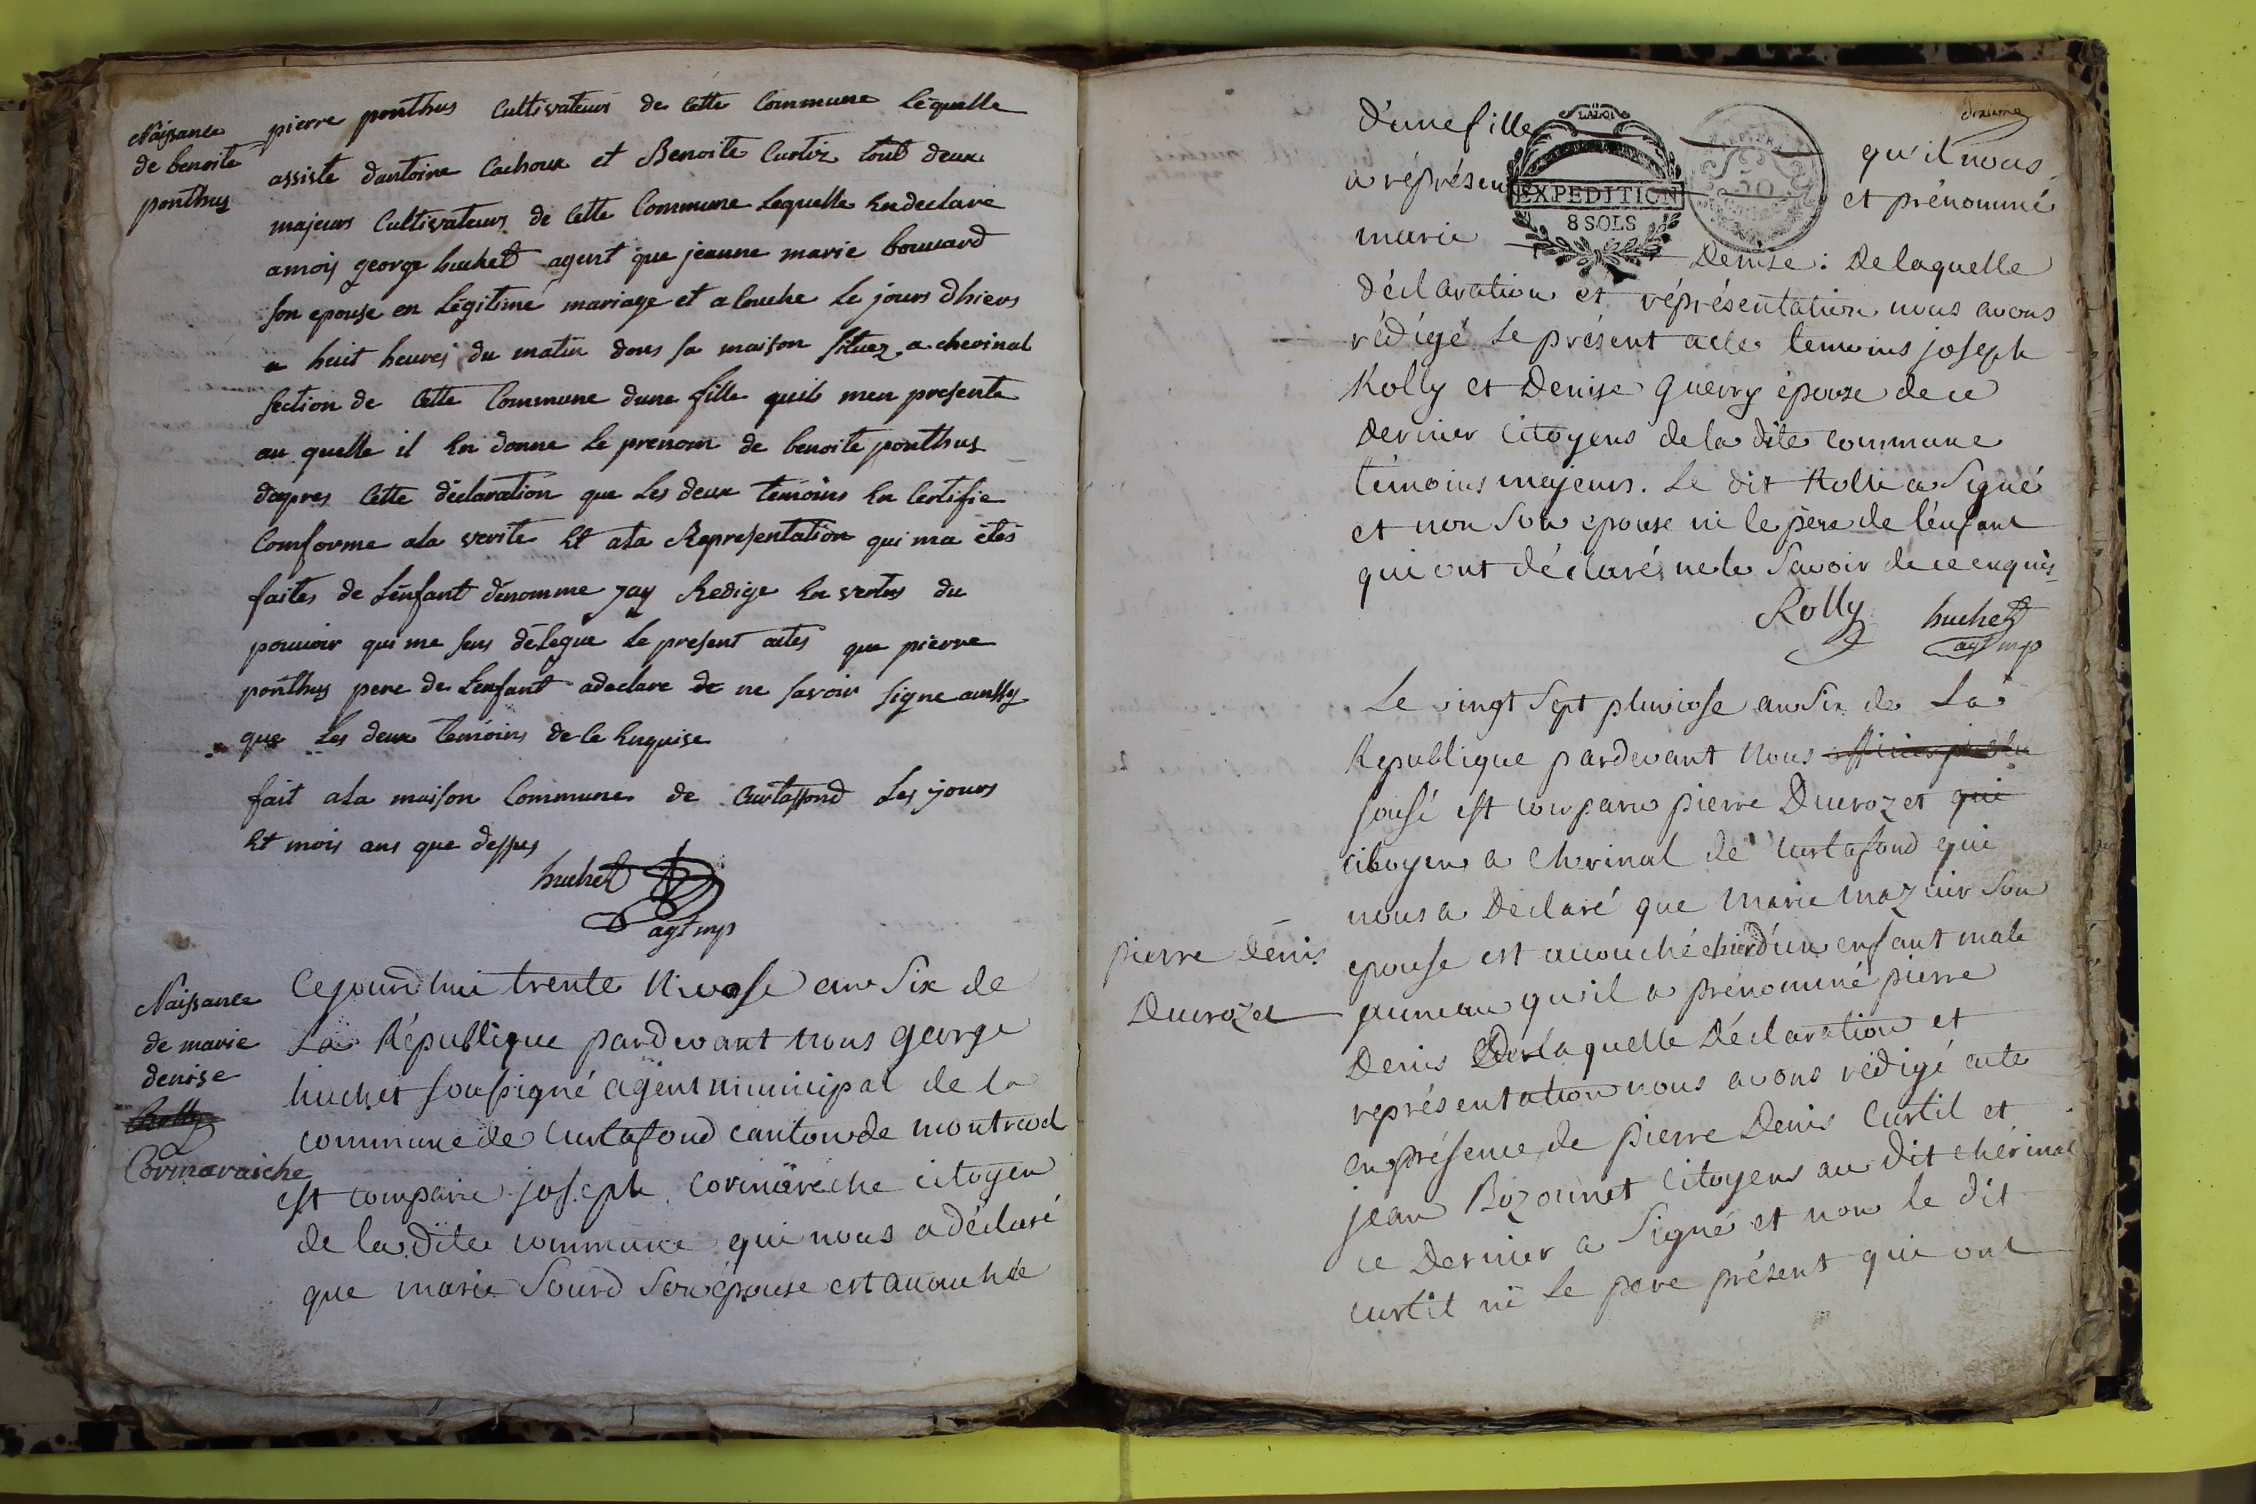 Naissance
de benoite
ponthus
pierre ponthus Cultivateurs de Cette Commune Léquelle
assiste dantoine Cachoux et Benoite Curtiz tout deux
majeurs Cultivateurs de Cette Commune Lequelle En declare
amois george huchet agent que jeanne marie bouvard
son epouse en Légitime mariage et a Couche Le jours dhiers
a huit heures du matin dans sa maison situez a cherinal
section de Cette Commune dune fille quil men presente
au quelle il En donne Le prenom de benoite ponthus
dapres Cette déclaration que Les deux temoins En Certifie
Comforme ala verite Et ala Representation qui ma étés
faites de Lenfant dénomme jay Redige En vertus du
pouvoir qui me sens délegue Le present actes que pierre
ponthus pere de Lenfant a declare de ne savoir signe aussy
que Les deux temoins de le Enquise
fait ala maison Commune de Curtaffond Les jours
Et mois ans que dessus
huchet
agt mp
Naissance
de marie
denise
Rolly
Cormaraiche
Cejourdhui trente Nivose an Six de
La République pardevant nous george
huchet soussigné agent municipal de la
commune de Curtafond canton de montrevel
est comparu joseph cormareche citoyen
de la dite commune qui nous a déclaré
que marie Sourd son épouse est accouchée
dixieme
D'une fille qu'il nous
a réprésen et prénommé
marie Denise : De laquelle
LA LOI
EXPEDITION
8 SOLS
50
déclaration et réprésentation nous avons
rédigé Le présent acte temoins joseph
Rolly et Denise Guerry épouse de ce
Dernier Citoyens de la dite commune
témoins majeurs. Le dit Rolli a Signé
et non son epouse ni le père de l'énfant
qui ont déclarés ne le Savoir de ce enquis
Rolly huchet
agt mp
Le vingt Sept pluviose an Six de La
Republique pardevant Nous officier public
sousé est comparu pierre Ducrozet qui
citoyen a Cherinal de Curtafond qui
nous a Declaré que marie mazuir Son
epouse est accouché hier d'un enfant male
pierre denis
Ducrozet
jumeau qu'il a prénommé pierre
Denis De laquelle Déclaration et
représentation nous avons rédigé acte
en présence de pierre Denis Curtil et
jean Bozonnet Citoyens au dit chérinal
ce Dernier a Signé et non le dit
curtil ni Le pere présent qui ont